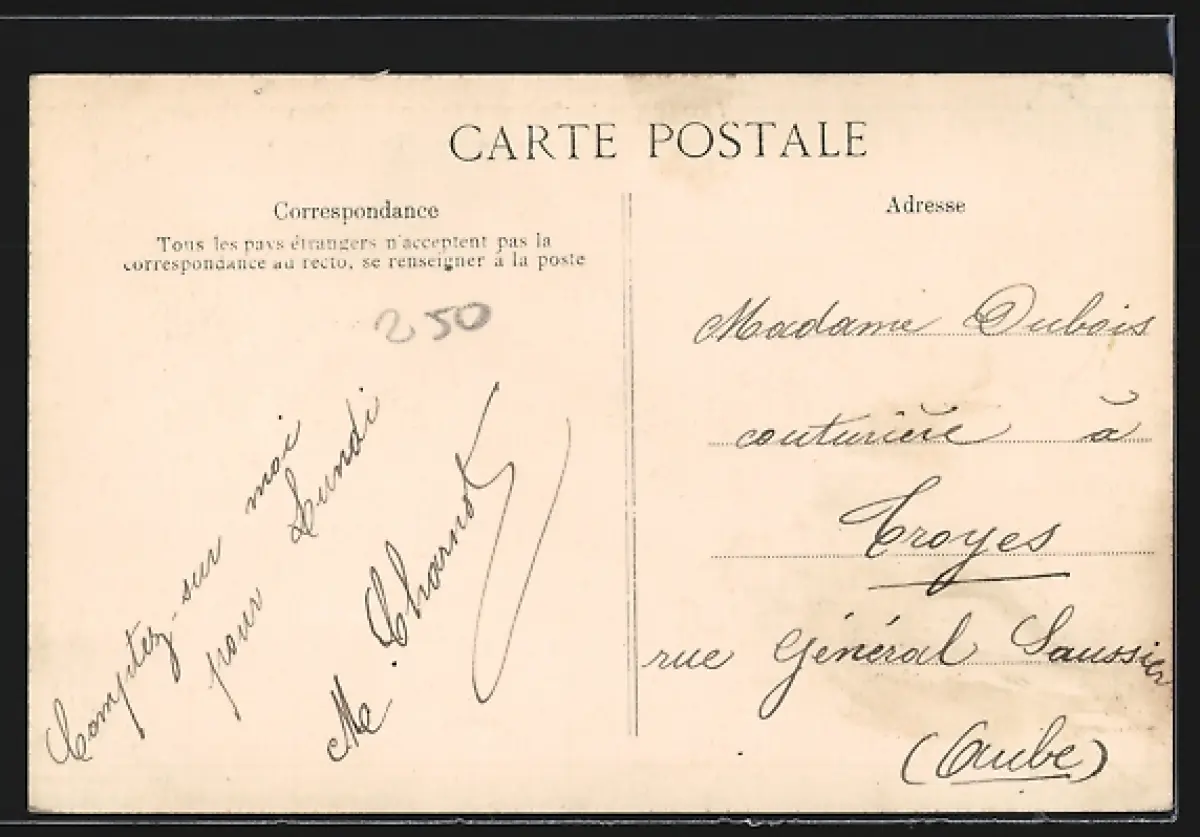 CARTE POSTALE
Correspondance
Tous les pays étrangers n'acceptent pas la
correspondance au recto, se renseigner à la poste
250
Comptez-sur moi
pour Lundi
M. Charnot
Adresse
Madame Dubois
couturière à
Troyes
rue Général Saussier
(Aube)